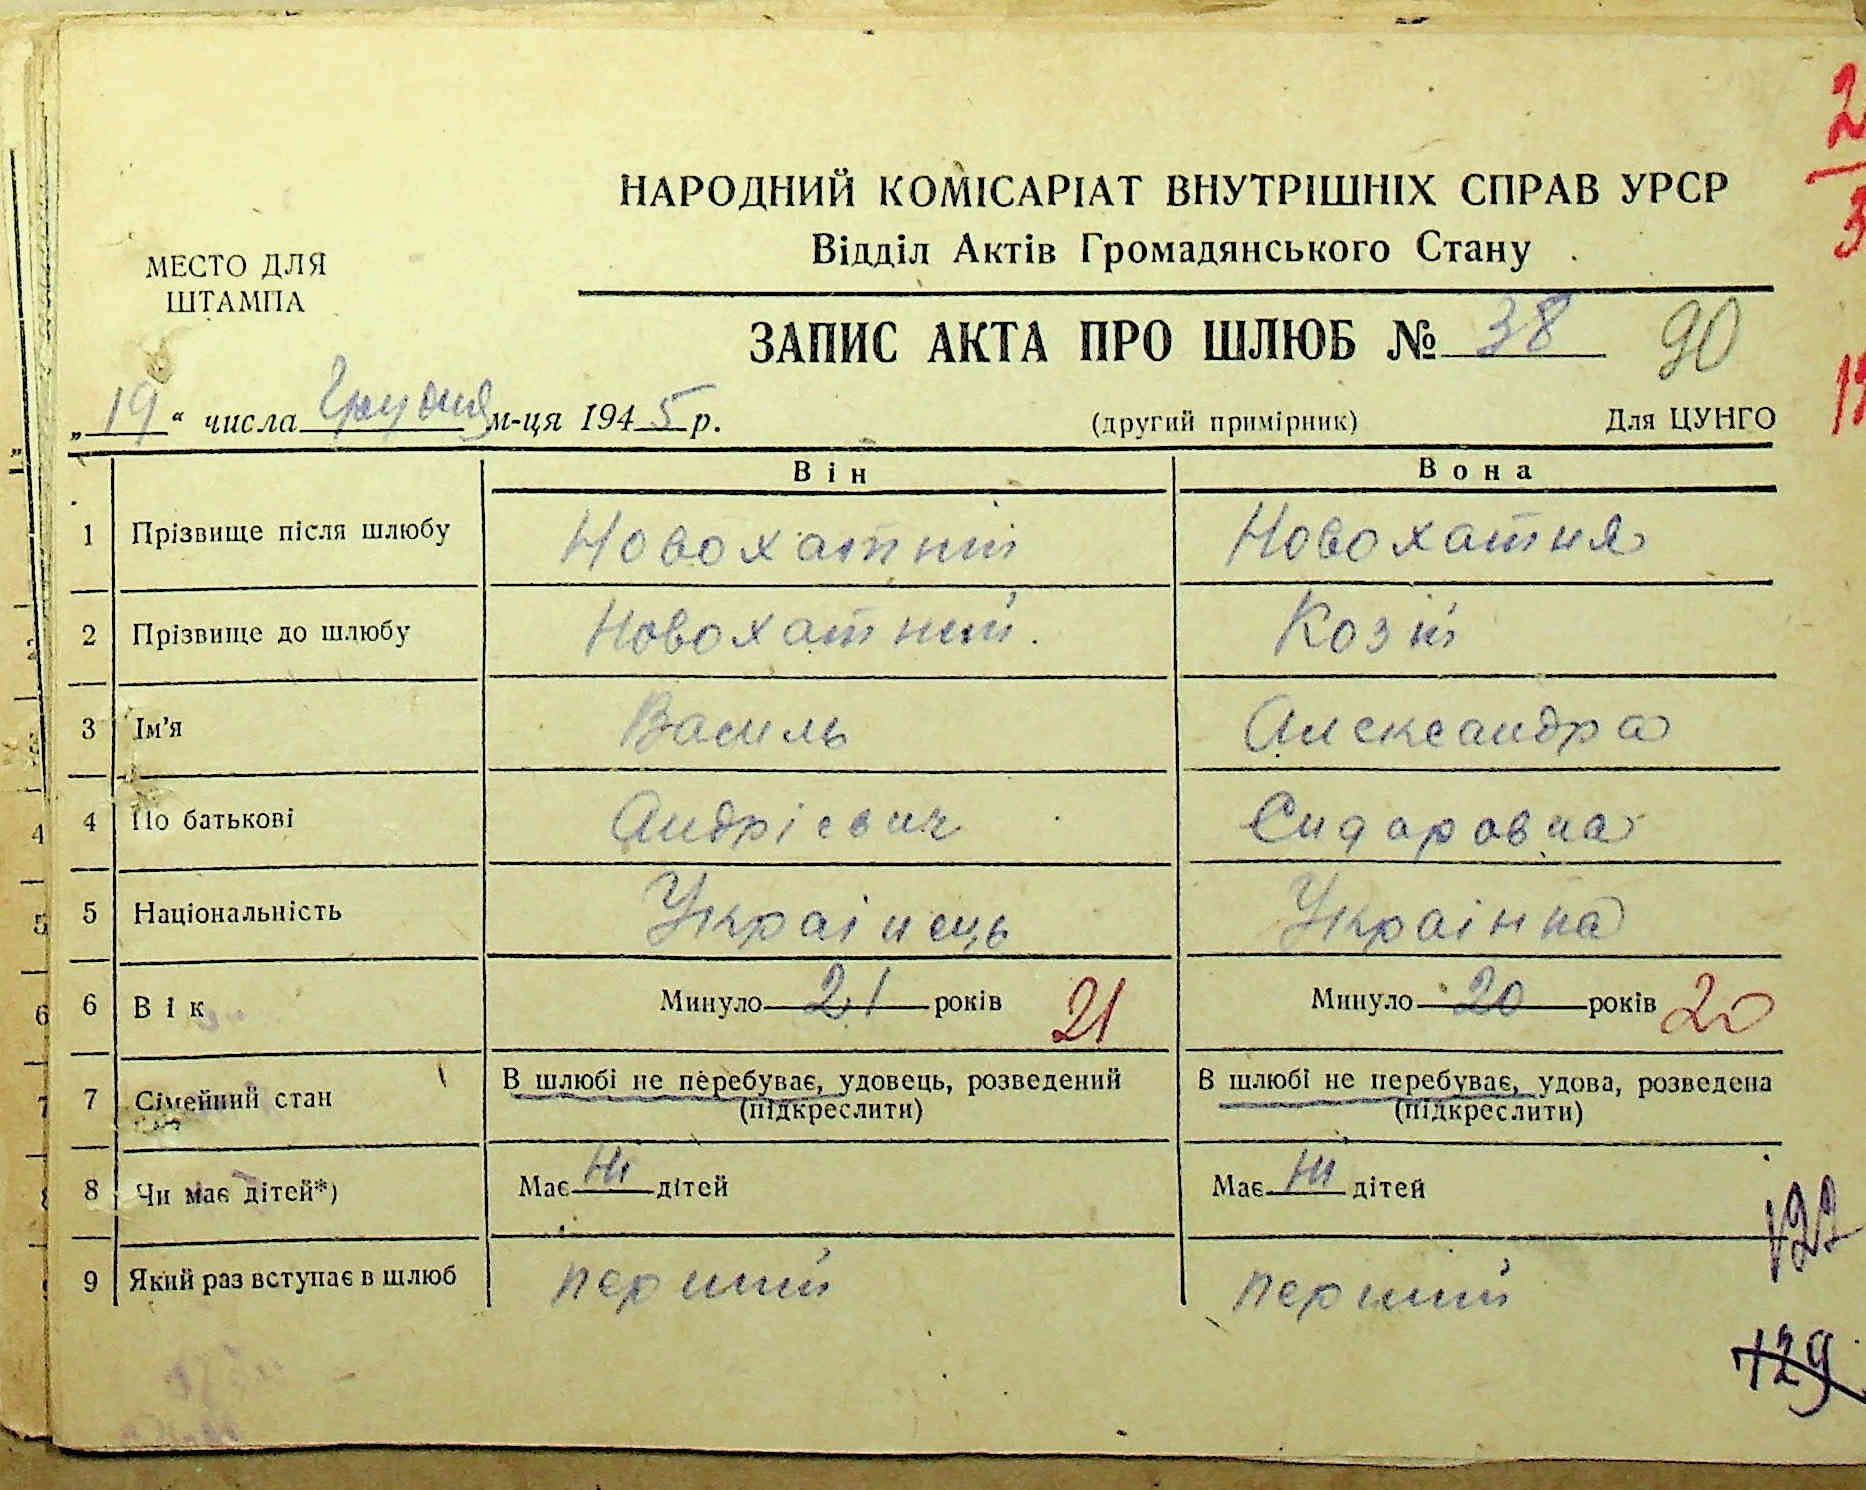 НАРОДНИЙ КОМІСАРІАТ ВНУТРІШНІХ СПРАВ УРСР
Відділ Актів Громадянського Стану
МЕСТО ДЛЯ
ШТАМПА
ЗАПИС АКТА ПРО ШЛЮБ № 38 90
„19“ числа Грудня м-ця 1945 р. (другий примірник) Для ЦУНГО
Він Вона
1 Прізвище після шлюбу Новохатній Новохатня
2 Прізвище до шлюбу Новохатний. Козій
3 Ім'я Василь Александра
4 По батькові Андрієвич Сидоровна
5 Національність Украінець Украінка
6 Вік Минуло 21 років 21 Минуло 20 років 20
7 Сімейний стан В шлюбі не перебуває, удовець, розведений (підкреслити) В шлюбі не перебуває, удова, розведена (підкреслити)
8 Чи має дітей*) Має Ні дітей Має Ні дітей
9 Який раз вступає в шлюб перший перший
129